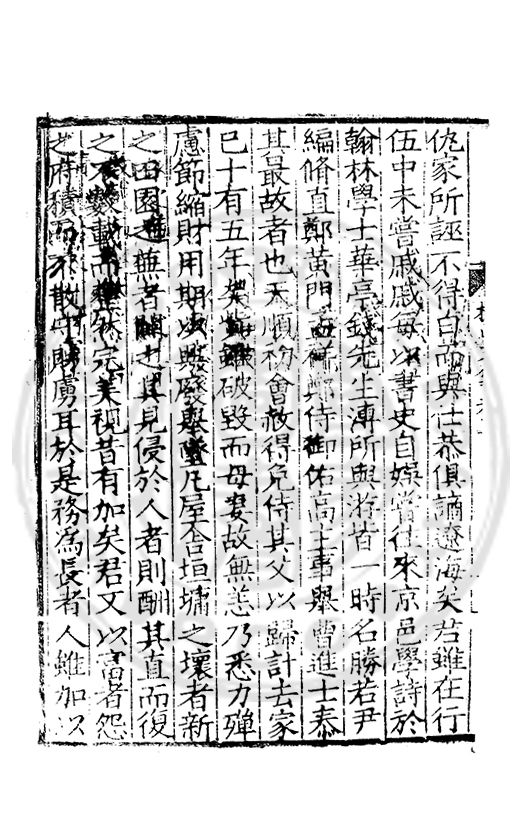 仇家所誣不得白而與仕恭俱謫遼海矣君雖在行
伍中未嘗戚戚每以書史自娛嘗往來京邑學詩於
翰林學士華亭錢先生溥所與游皆一時名勝若尹
編脩直鄭黃門鄭侍御佑高主事舉曹進士泰
其最故者也天順初會赦得免侍其父以歸計去家
已十有五年矣破毀而母妻故無恙乃悉力殫
慮節縮財用期以興廢舉墜凡屋舍垣墉之壞者新
之田園之蕪者闢之其見侵於人者則酬其直而復
之不數載而完美視昔有加矣君又以富者怨
之府積而不散守財虜耳於是務為長者人雖加以